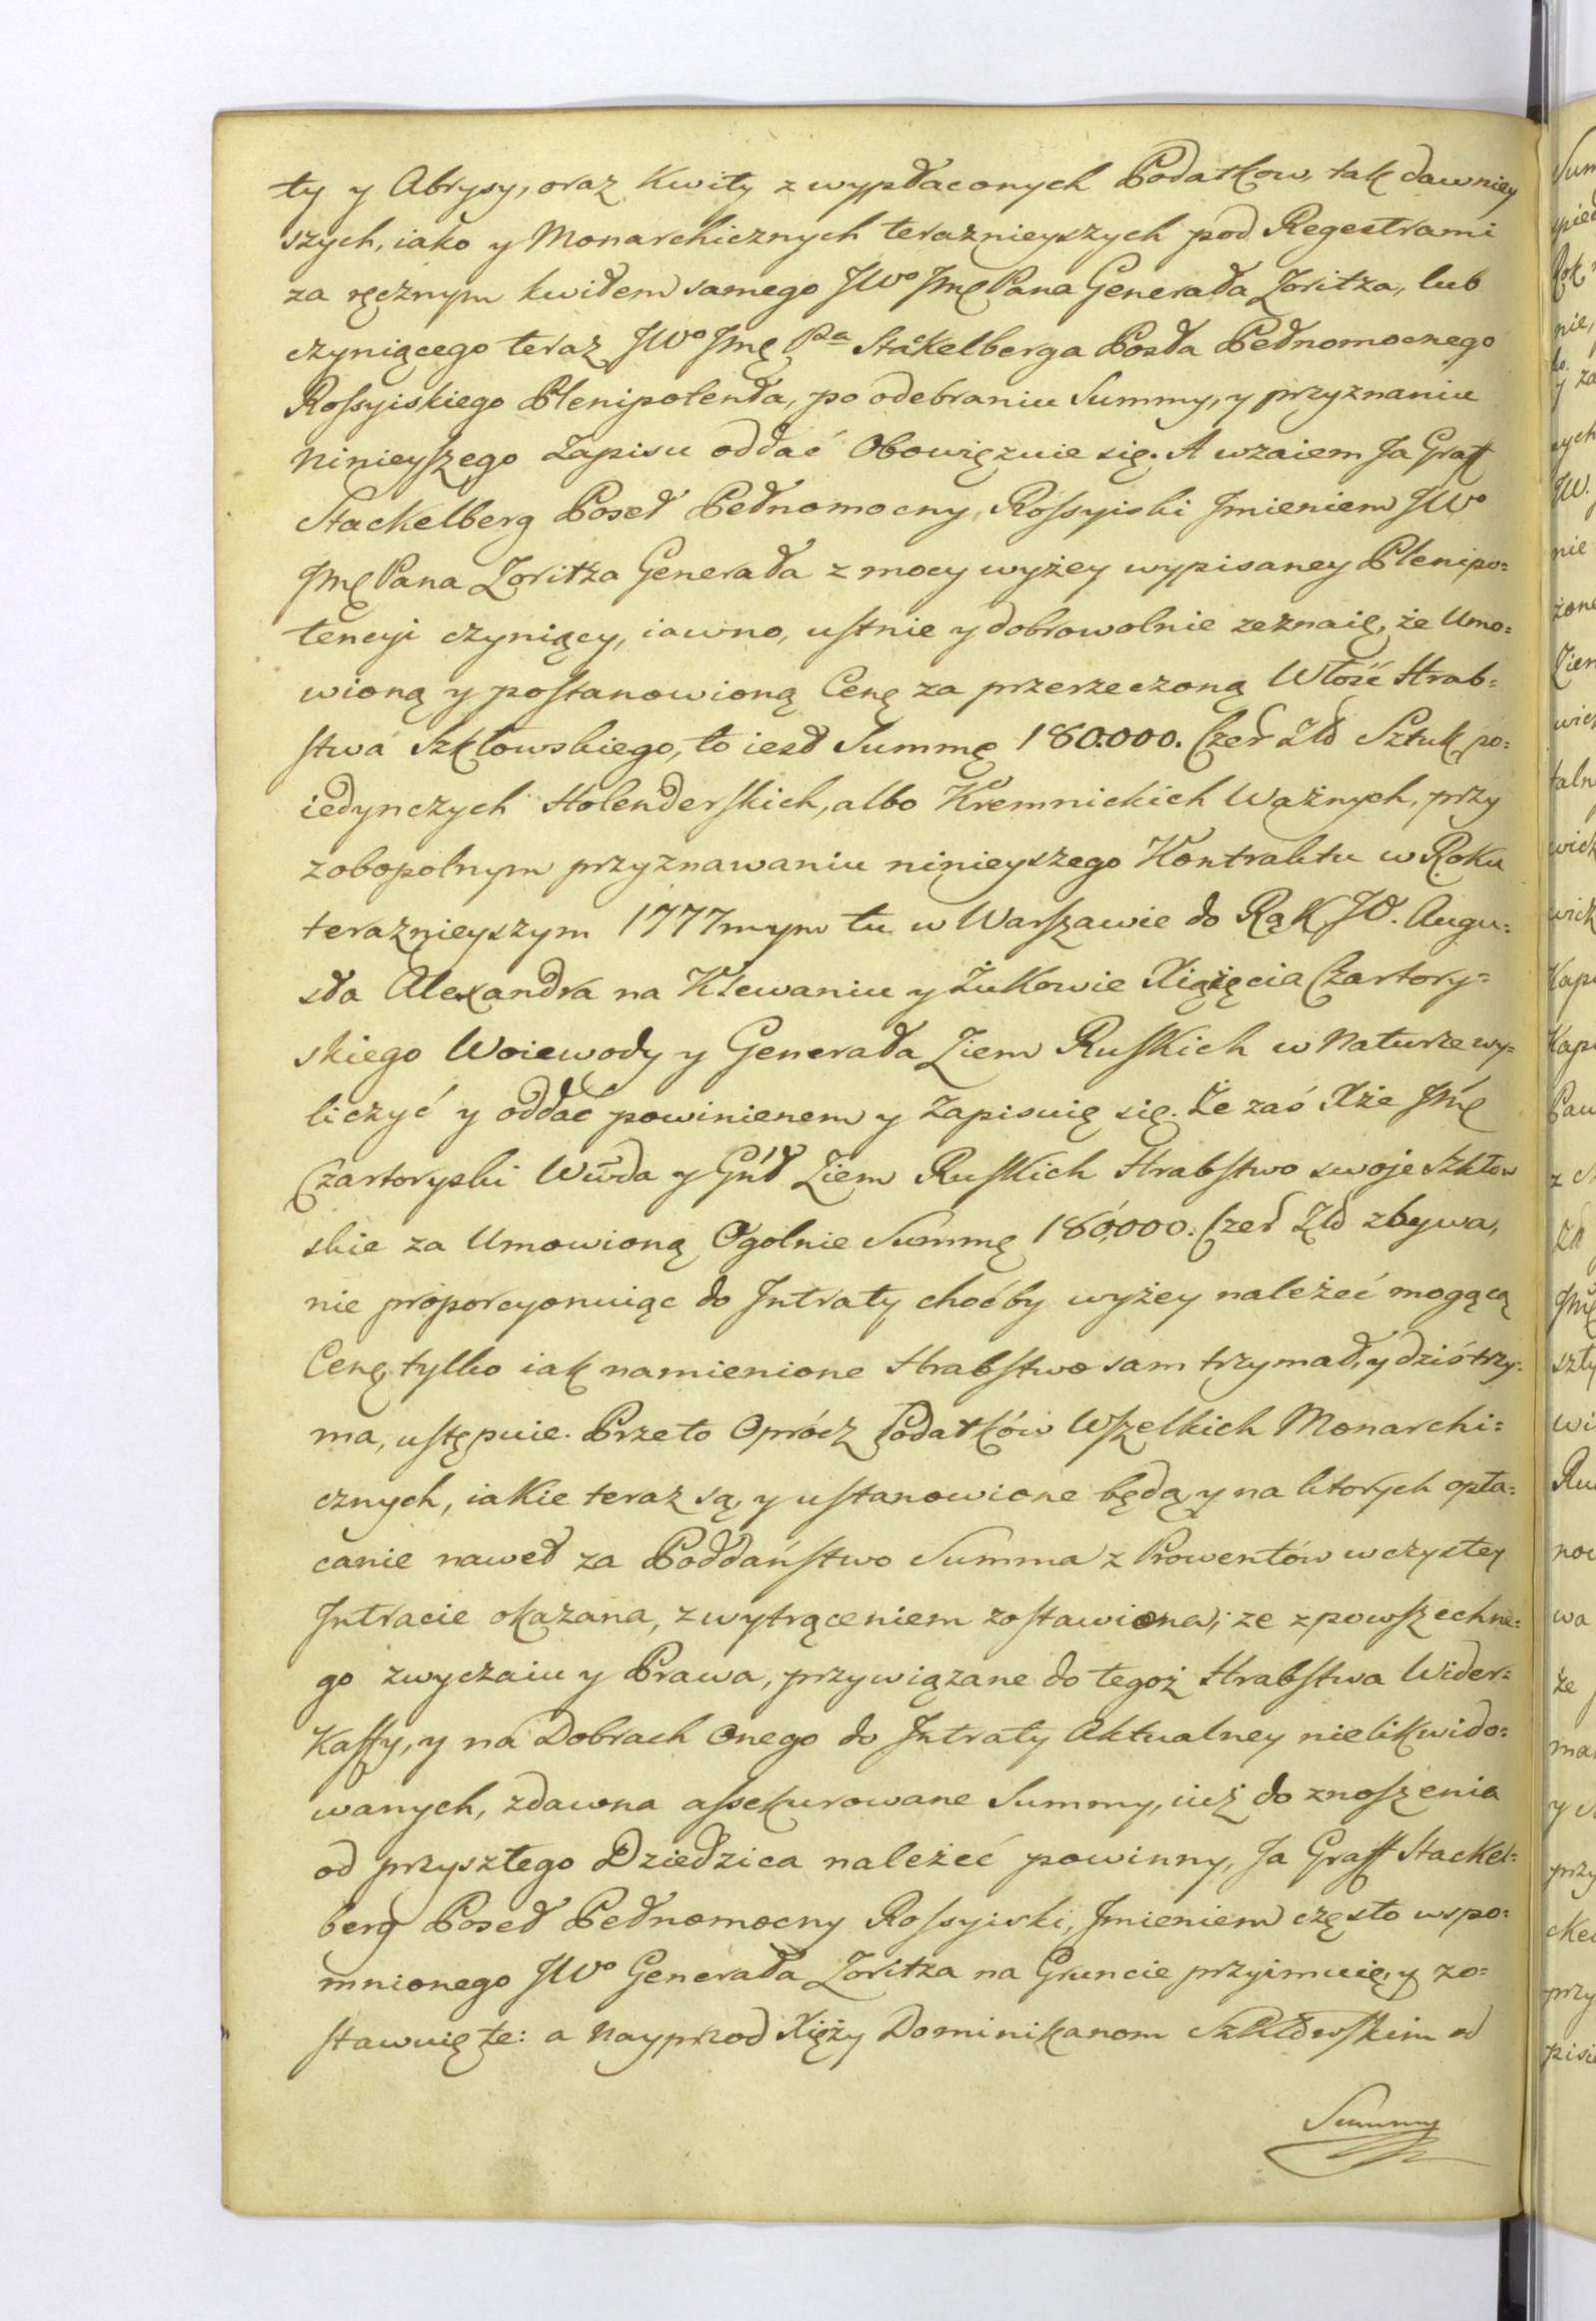 ty y Abrysy, oraz Kwity z wypłaconych Podatkow, tak dawniey
szych, iako y Monarchicznych teraznieyszych pod Regestrami
za ręcznym kwitem samego JWo Jmę Pana Generała Zoritza, lub
czyniącego teraz JWo Jmę Pa Stakelberga Posła Pełnomocnego
Rossyiskiego Plenipotenta, po odebraniu Summy, y przyznaniu
Ninieyszego Zapisu oddać Obowięzuie się. A wzaiem Ja Graf
Stackelberg Poseł Pełnomocny Rossyiski Jmieniem JWo
Jmę Pana Zoritza Generała z mocy wyżey wypisaney Plenipo=
tencyi czyniący, iawno, ustnie y dobrowolnie zeznaię, że Umo=
wioną y postanowioną Cenę za przerzeczoną Włość Hrab=
stwa Szkłowskiego, to iest Summę 180.000. Czer Złł Sztuk po=
iedynczych Holenderskich, albo Kremnickich Ważnych, przy
zobopolnym przyznawaniu ninieyszego Kontraktu w Roku
teraznieyszym 1777mym tu w Warszawie do Rąk JO. Augu=
sta Alexandra na Klewaniu y Żukowie Xiążęcia Czartory=
skiego Woiewody y Generała Ziem Ruskich w Naturze wy=
liczyć y oddać powinienem y Zapisuię się. Że zaś Xże Jmę
Czartoryski Wwda y Gnł Ziem Ruskich Hrabstwo swoje Szkłow
skie za Umowioną Ogolnie Summę 180,000. Czer Złł zbywa,
nie proporcyonuiąc do Intraty choćby wyżey należeć mogącą
Cenę, tylko iak namienione Hrabstwo sam trzymał, y dziś trzy=
ma, ustępuie. Przeto Oprócz Podatków Wszelkich Monarchi=
cznych, iakie teraz są, y ustanowione będą, y na ktorych opła=
canie nawet za Poddaństwo Summa z Prowentów w czystey
Intracie okazana, z wytrąceniem zostawiona; ze z powszechne=
go zwyczaiu y Prawa, przywiązane do tegoż Hrabstwa Wider=
Kaffy, y na Dobrach Onego do Intraty Aktualney nielikwido=
wanych, zdawna assekurowane Summy, iuż do znoszenia
od przyszłego Dziedzica należeć powinny, Ja Graff Stackel=
berg Poseł Pełnomocny Rossyiski, Jmieniem często wspo=
mnionego JWo Generała Zoritza na Gruncie przyimuię, y zo=
stawuię te: a Nayprzod Xięży Dominikanom Szkłowskim od
Summy